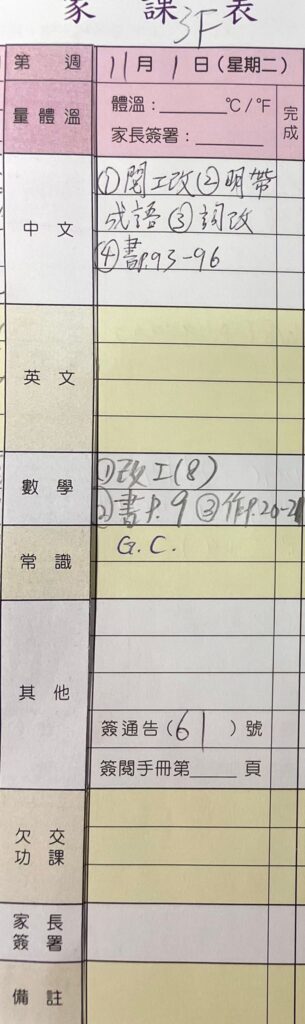 家 課 表
3F
第 週 11月1日(星期二)
量體溫 體溫:______℃/℉ 完成
家長簽署:______
中文 ①閱工改②明帶
成語③詞改
④書P.93-96
英文
數學 ①改工(8)
②書P.9 ③作P.20-21
常識 G.C.
其他
簽通告(61)號
簽閱手冊第____頁
欠交
功課
家長
簽署
備註